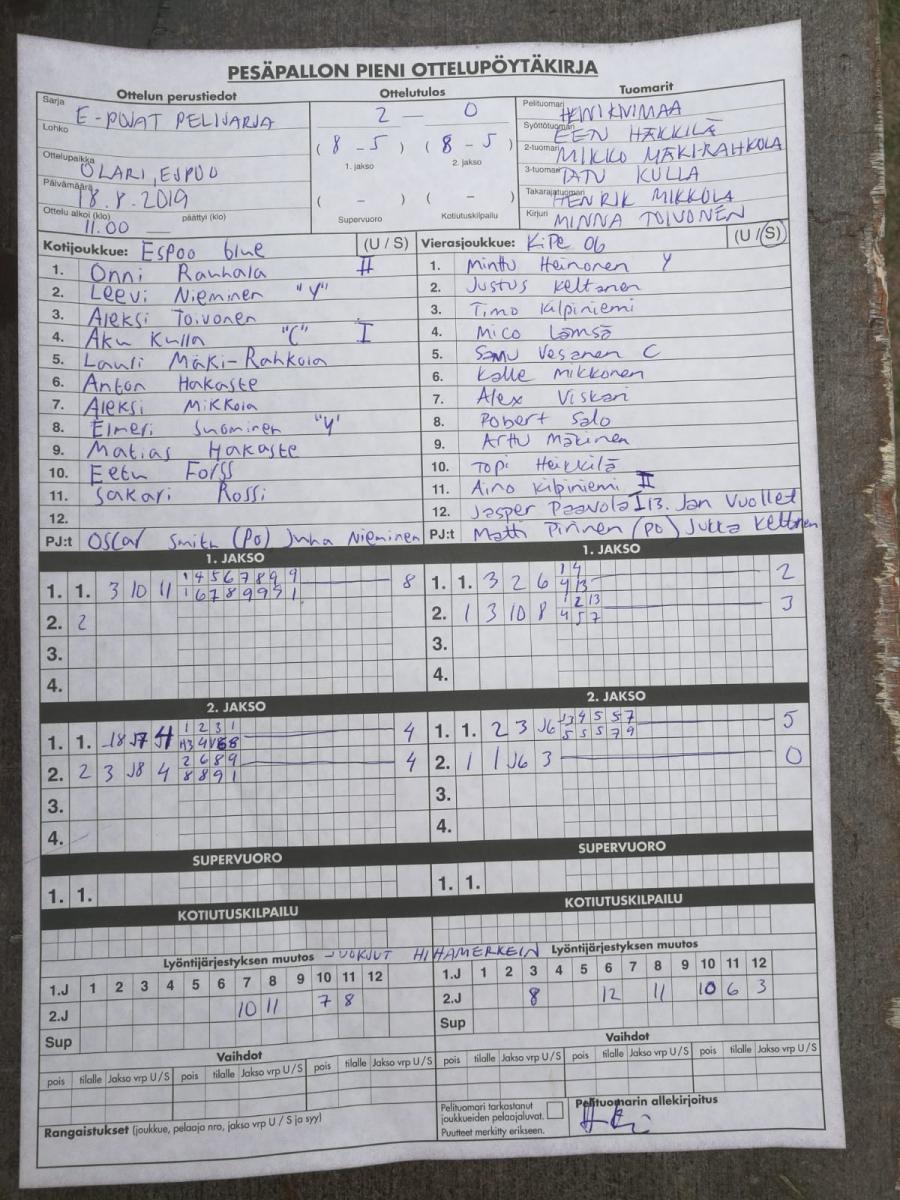 PESÄPALLON PIENI OTTELUPÖYTÄKIRJA
Ottelun perustiedot Ottelutulos Tuomarit
Sarja E-POJAT PELISARJA
Lohko
Ottelupaikka OLARI, ESPOO
Päivämäärä 18.8.2019
Ottelu alkoi (klo) 11.00 päättyi (klo)
2 — 0
( 8 - 5 ) ( 8 - 5 )
1. jakso 2. jakso
( - ) ( - )
Supervuoro Kotiutuskilpailu
Pelituomari HEINI KIVIMAA
Syöttötuomari EEN HÄKKILÄ
2-tuomari MIKKO MÄKI-RAHKOLA
3-tuomari TATU KULLA
Takarajatuomari HENRIK MIKKOLA
Kirjuri MINNA TOIVONEN
Kotijoukkue: Espoo blue (U / S)
1. Onni Rauhala
2. Leevi Nieminen "Y"
3. Aleksi Toivonen
4. Aku Kulla "C" I
5. Lauri Mäki-Rahkola
6. Anton Hakaste
7. Aleksi Mikkola
8. Elmeri Suominen "Y"
9. Matias Hakaste
10. Eetu Forss
11. Sakari Rossi
12.
PJ:t Oscar Smith (PO) Juha Nieminen
Vierasjoukkue: KiPe 06 (U / S)
1. Minttu Heinonen Y
2. Justus Keltanen
3. Timo Kilpiniemi
4. Mico Lämsä
5. Samu Vesanen C
6. Kalle Mikkonen
7. Alex Viskari
8. Robert Salo
9. Arttu Mäkinen
10. Topi Heikkilä
11. Aino Kilpiniemi II
12. Jasper Paavola I 13. Jan Vuollet
PJ:t Matti Pirinen (PO) Jukka Keltanen
1. JAKSO
1. 1. 3 10 11 1 4 5 6 7 8 9 9 8
1 6 7 8 9 9 9 1
2. 2
3.
4.
1. JAKSO
1. 1. 3 2 6 1 4 2
4 13
2. 1 3 10 8 1 2 13 3
4 5 7
3.
4.
2. JAKSO
1. 1. J8 J7 J4 1 2 3 1 4
2. 2 3 J8 4 2 6 8 9 4
8 8 9 1
3.
4.
2. JAKSO
1. 1. 2 3 J6 13 4 5 5 7 5
5 5 5 7 9
2. 1 1 J6 3 0
3.
4.
SUPERVUORO SUPERVUORO
1. 1. 1. 1.
KOTIUTUSKILPAILU KOTIUTUSKILPAILU
Lyöntijärjestyksen muutos JUOKSUT HIHAMERKEIN Lyöntijärjestyksen muutos
1.J 1 2 3 4 5 6 7 8 9 10 11 12
2.J 10 11 7 8
Sup
1.J 1 2 3 4 5 6 7 8 9 10 11 12
2.J 8 12 11 10 6 3
Sup
Vaihdot Vaihdot
pois tilalle Jakso vrp U / S pois tilalle Jakso vrp U / S pois tilalle Jakso vrp U / S
pois tilalle Jakso vrp U / S pois tilalle Jakso vrp U / S pois tilalle Jakso vrp U / S
Rangaistukset (joukkue, pelaaja nro, jakso vrp U / S ja syy)
Pelituomari tarkastanut
joukkueiden pelaajaluvat.
Puutteet merkitty erikseen.
Pelituomarin allekirjoitus